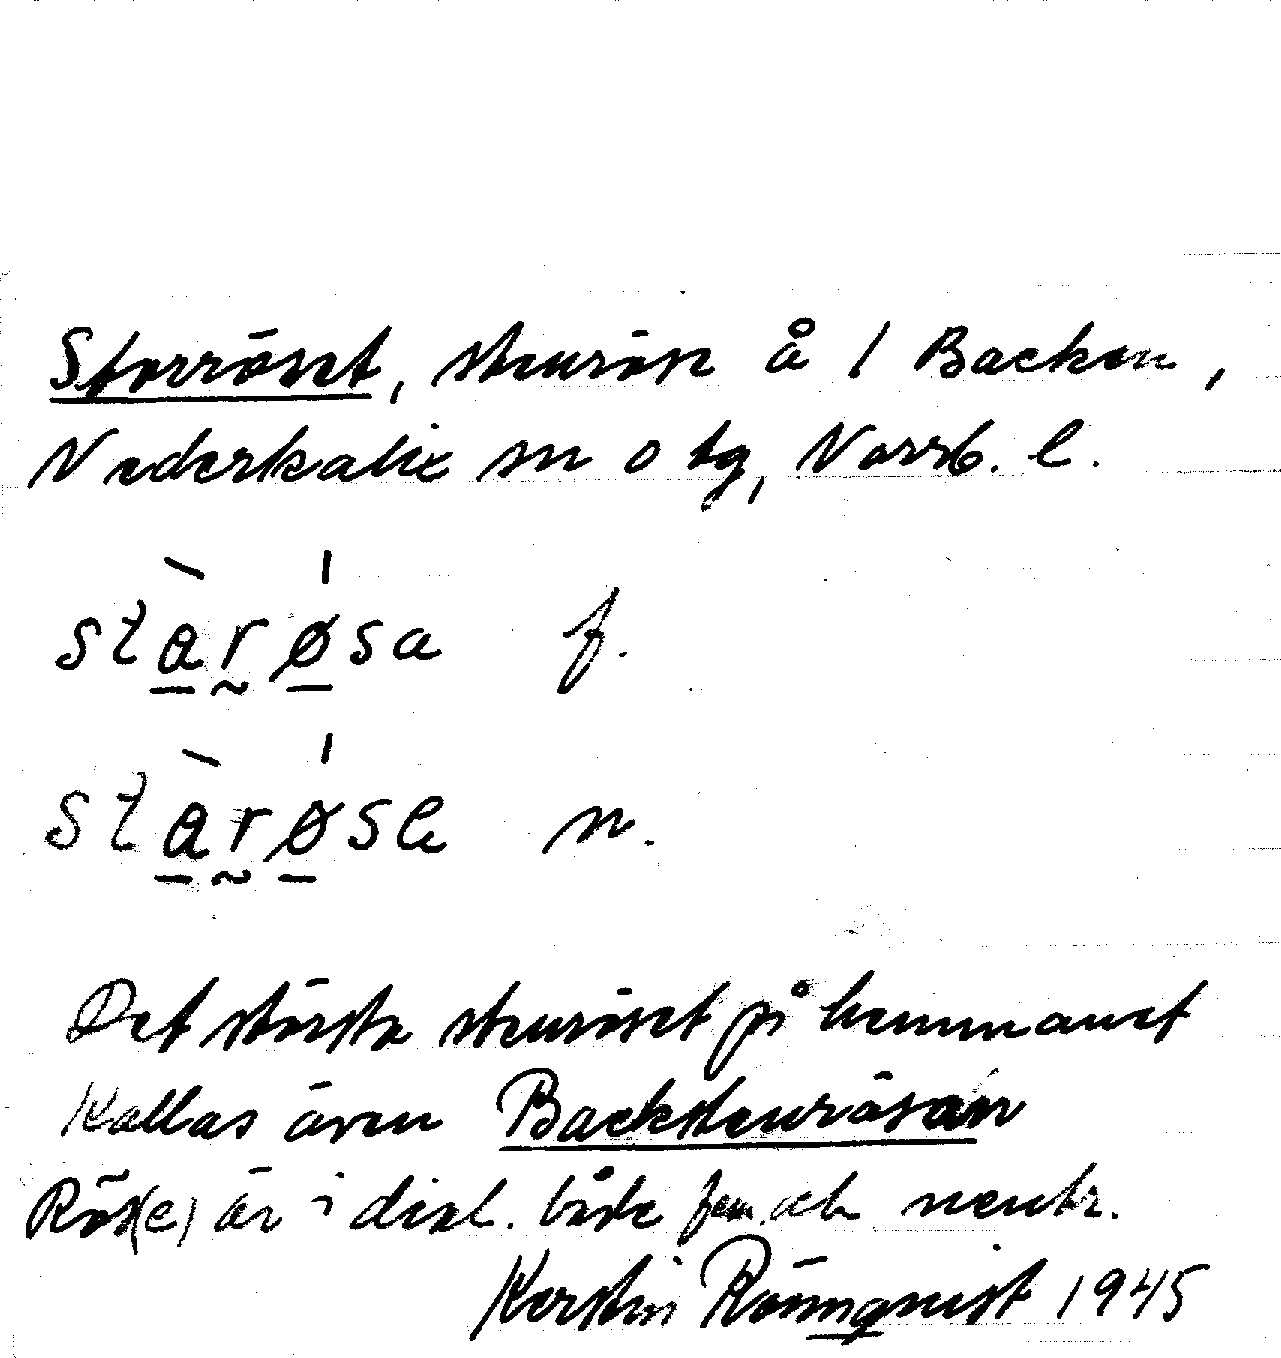 Storröset, stenröse å 1 Backen,
Nederkalix sn o tg, Norrb. l.
stàrø̍sa f.
stàrø̍se n.
Det största stenröset på hemmanet
Kallas även Backstenrösan
Rös(e) är i dial. både fem. och neutr.
Kerstin Rönnqvist 1945